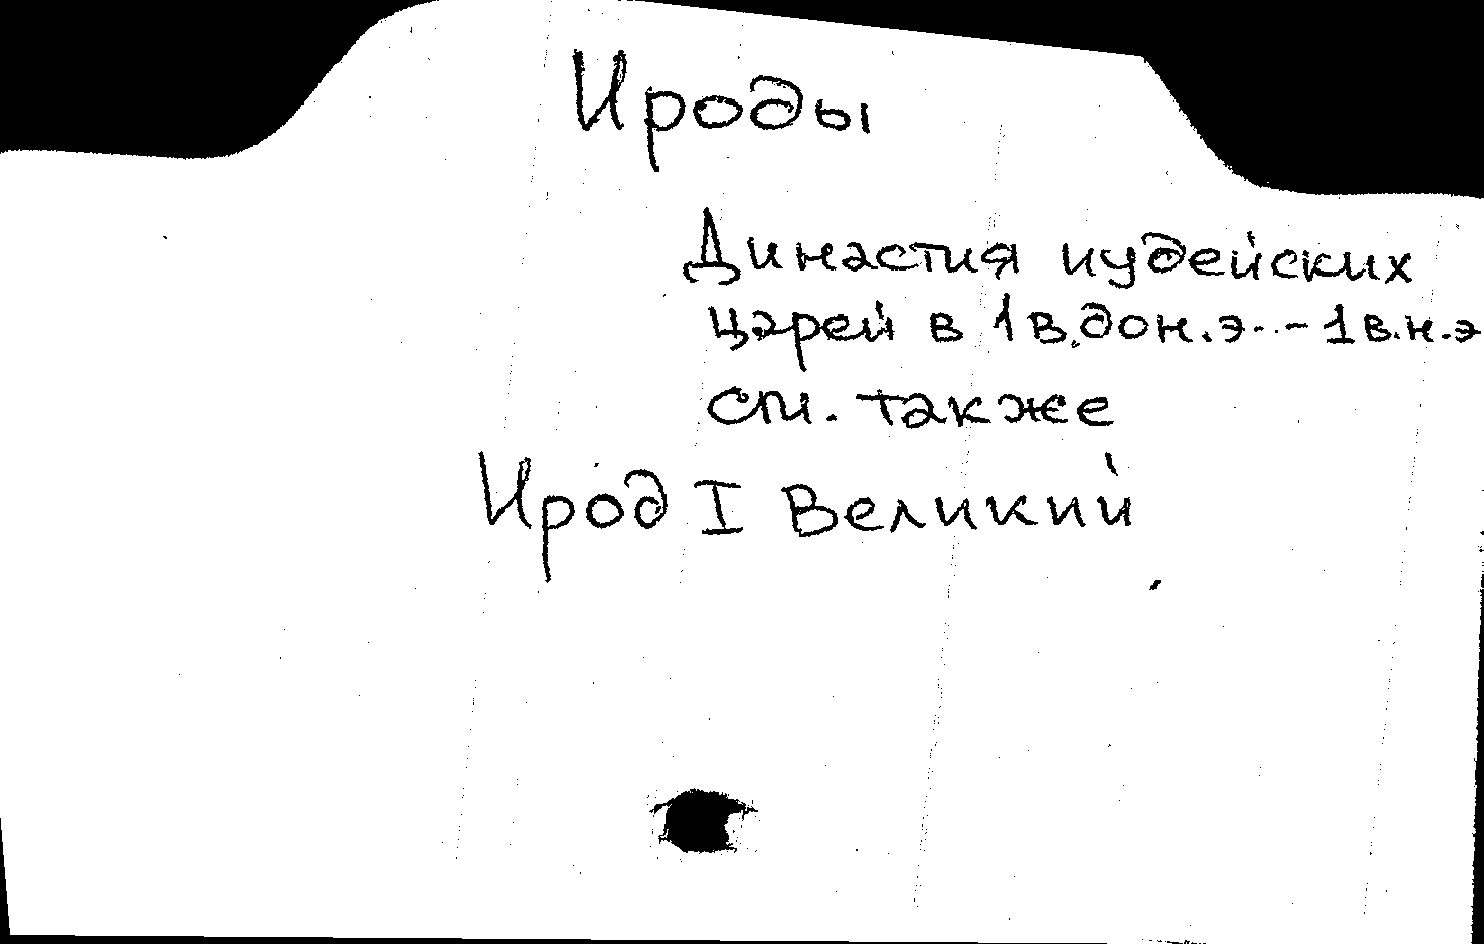 Ироды
Династия иудейских
царей в 1 в. до н. э. - 1 в. н. э
см. также
Ирод I Великий